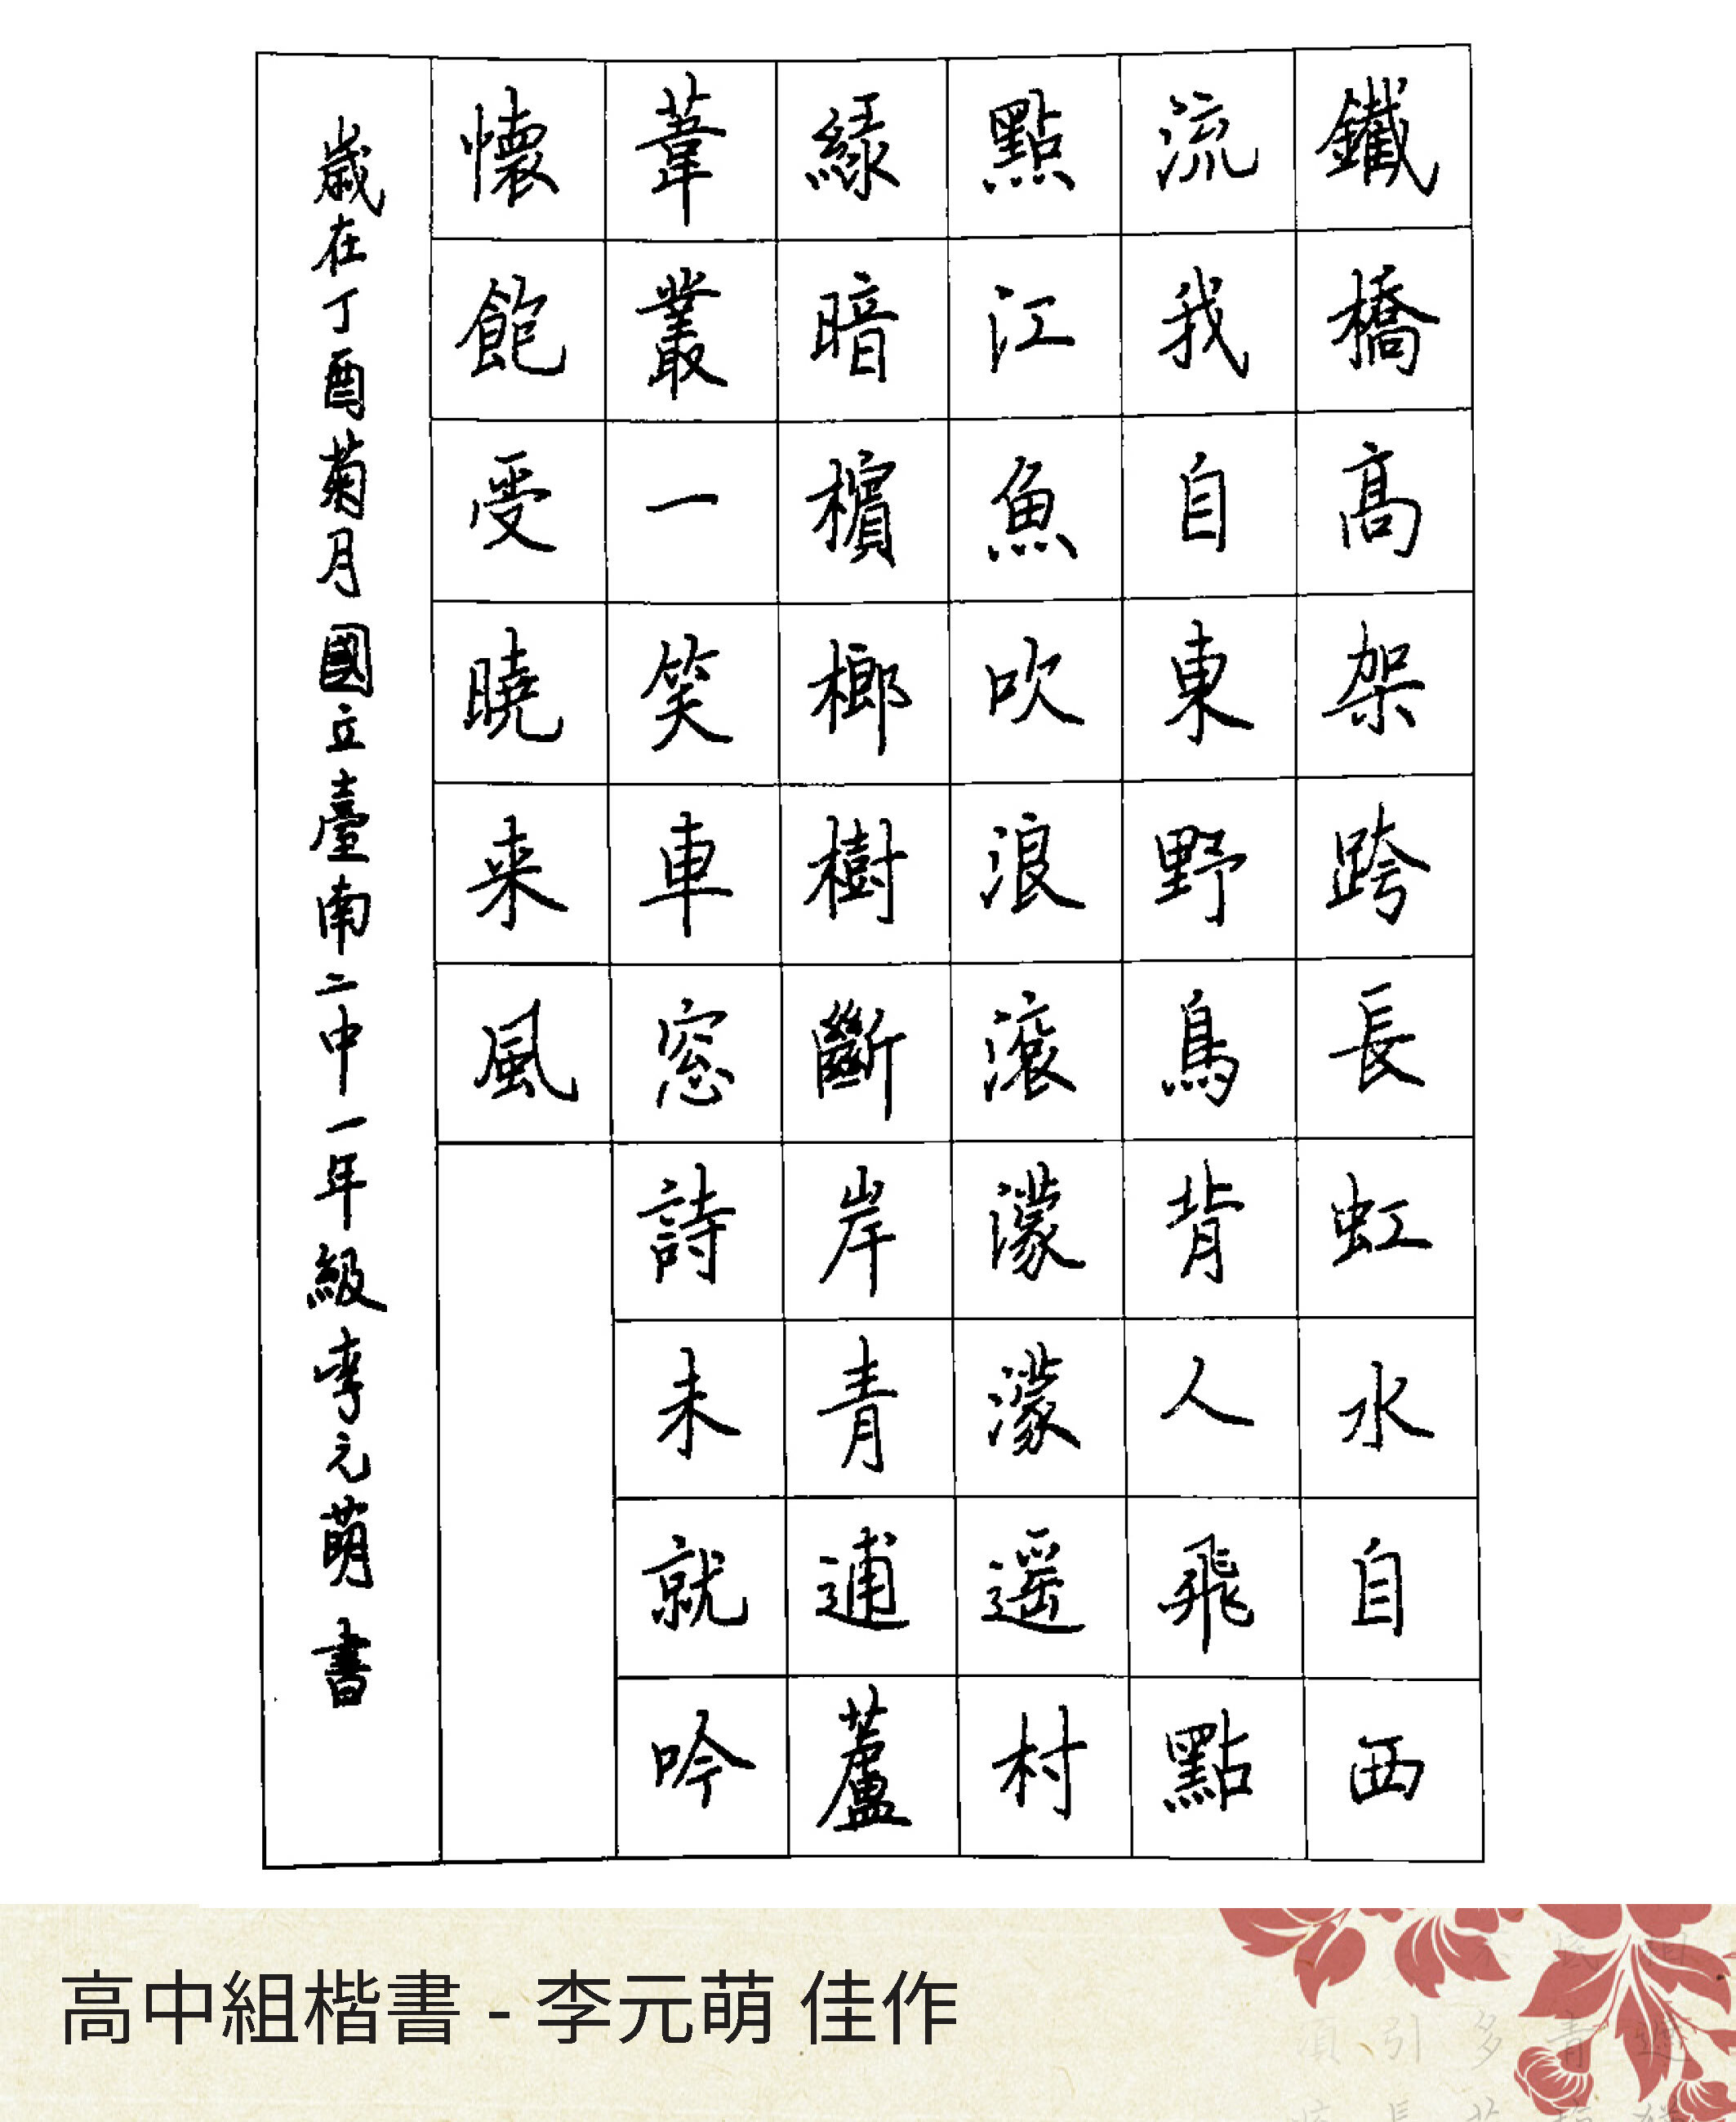 鐵橋高架跨長虹水自西
流我自東野鳥背人飛點
點江魚吹浪滾濛濛遥村
綠暗檳榔樹斷岸青逋蘆
葦叢一笑車窓詩未就吟
懷飽受曉来風
歲在丁酉菊月國立臺南二中一年級李元萌書
高中組楷書 - 李元萌 佳作